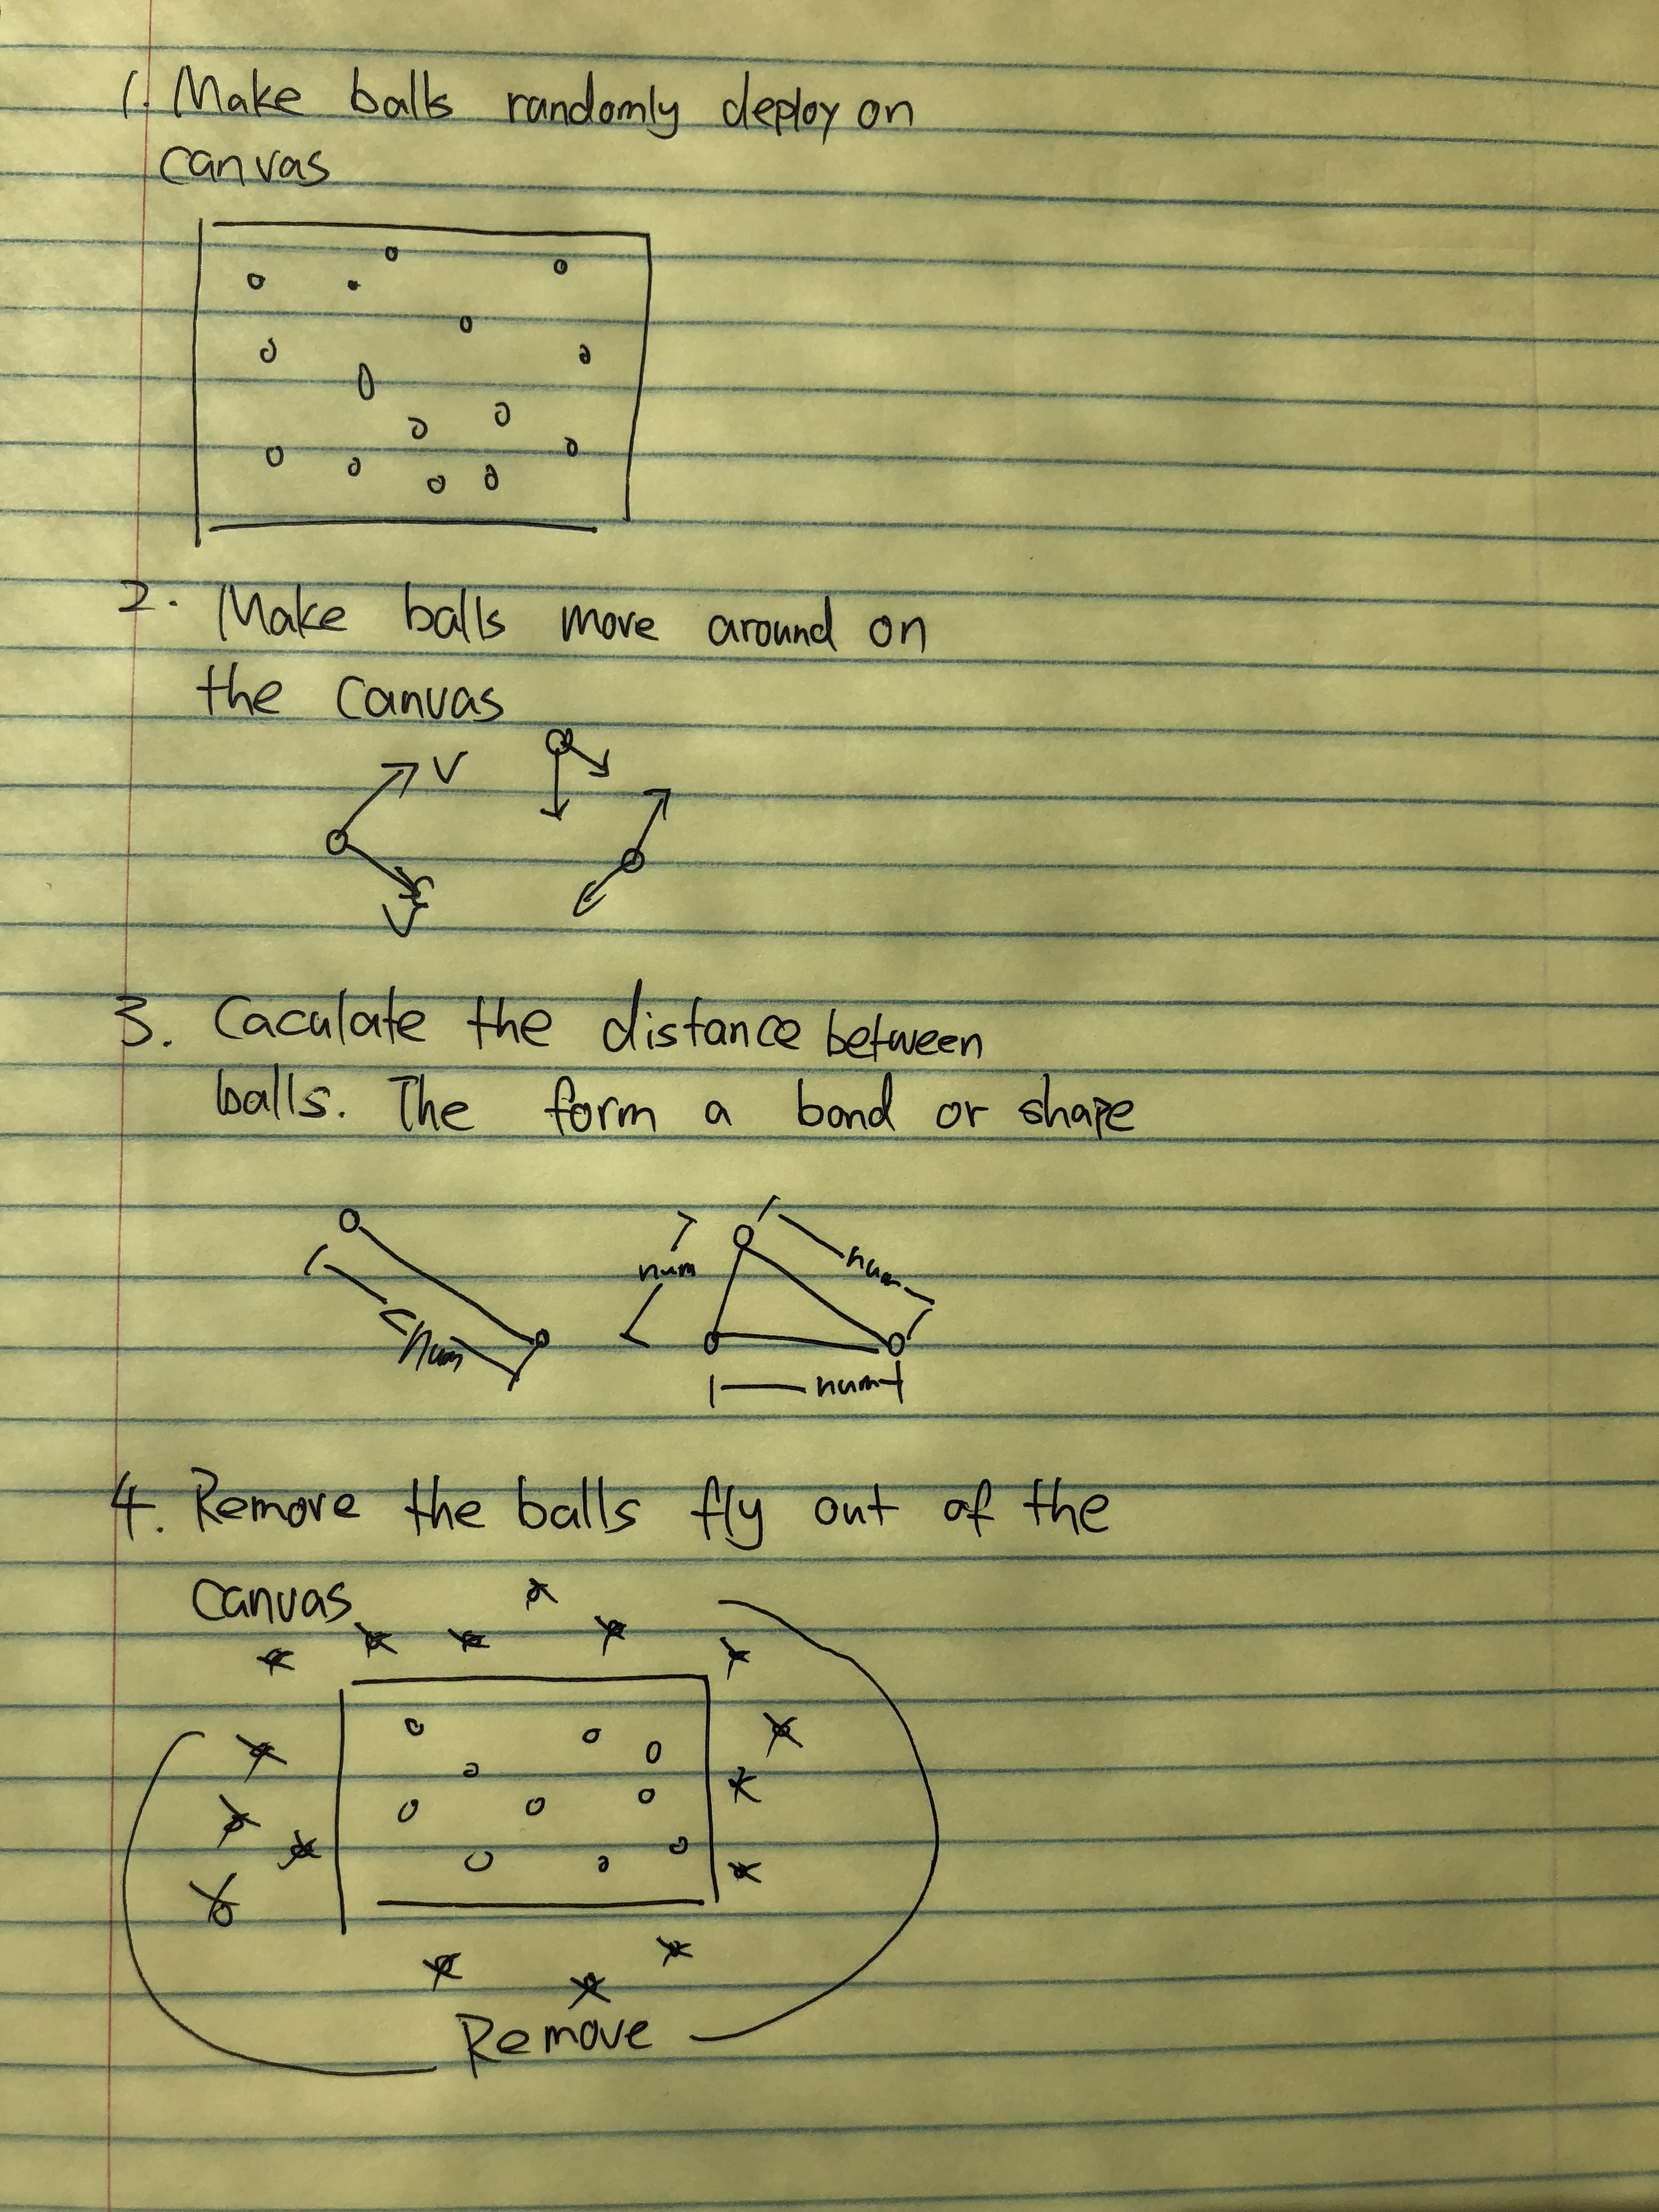 1. Make balls randomly deploy on
canvas
2. Make balls move around on
the canvas
V
V
3. Caculate the distance between
balls. The form a bond or shape
num
num
<num
num
4. Remove the balls fly out of the
canvas
Remove